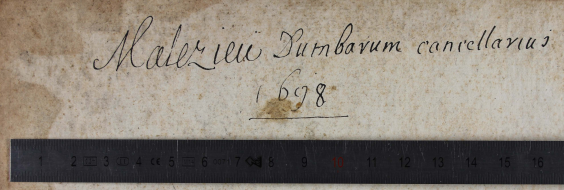 Malezieü Dumbarum cancellarius
1698
1 2 3 4 5 6 7 8 9 10 11 12 13 14 15 16